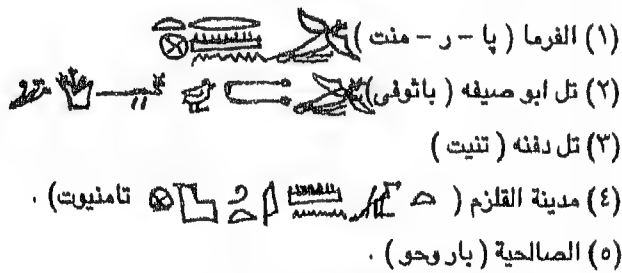 (١) الفرما (پا - ر - منت)
(٢) تل ابو صيفه (باثوفى)
(٣) تل دفنه (تنيت)
(٤) مدينة القلزم ( تامنيوت) .
(٥) الصالحية (بار وحو) .